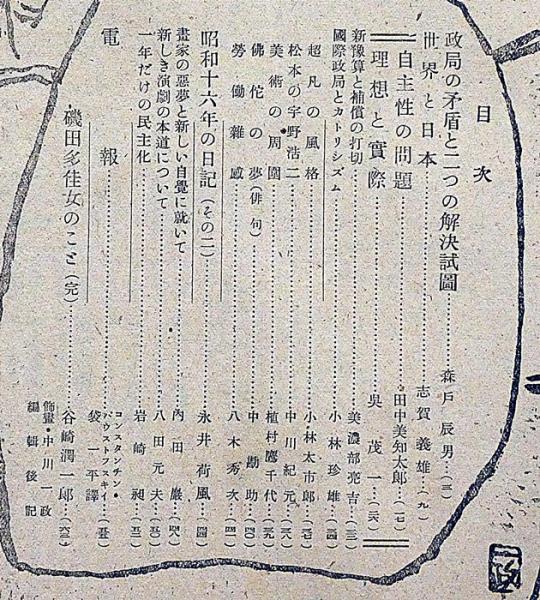 目次
政局の矛盾と二つの解決試圖 森戸辰男(二)
世界と日本 志賀義雄(九)
自主性の問題 田中美知太郎(一七)
理想と實際 呉茂一(二六)
新豫算と補償の打切 美濃部亮吉(三三)
國際政局とカトリシズム 小林珍雄(三四)
超凡の風格 小林太市郎(三七)
松本の宇野浩二 中川紀元(三六)
美術の周圍 植村鷹千代(三九)
佛陀の夢(俳句) 中勘助(四〇)
勞働雜感 八木秀次(四一)
昭和十六年の日記(その二) 永井荷風(四四)
畫家の惡夢と新しい自覺に就いて 內田巖(四八)
新しき演劇の本道について 八田元夫(五〇)
一年だけの民主化 岩崎昶(五二)
電報 コンスタンチン・パウストフスキイ 袋一平譯(五五)
磯田多佳女のこと(完) 谷崎潤一郎(六三)
飾畫・中川一政
編輯後記
一政